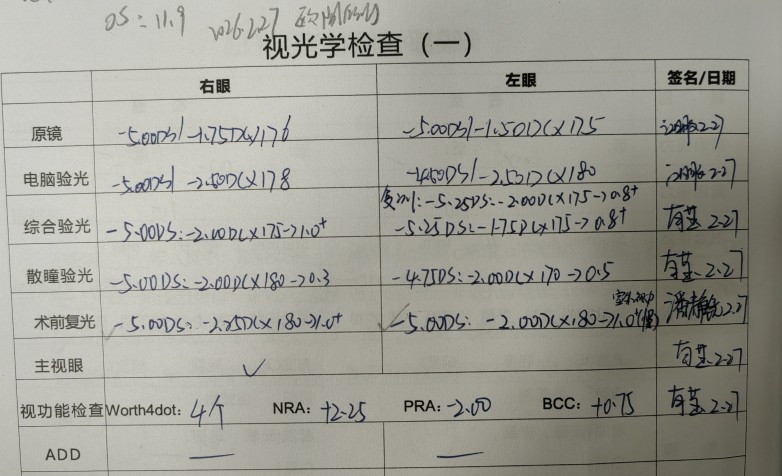 OS: 11.9 2026.2.27
视光学检查（一）
右眼 左眼 签名/日期
原镜 -5.00DS/-1.75DC×176 -5.00DS/-1.50DC×175 2.27
电脑验光 -5.00DS/-2.50DC×178 -4.50DS/-2.50DC×180 2.27
复测:-5.25DS:-2.00DC×175→0.8⁺
综合验光 -5.00DS:-2.00DC×175→1.0⁺ -5.25DS:-1.75DC×175→0.8⁺ 2.27
散瞳验光 -5.00DS:-2.00DC×180→0.3 -4.75DS:-2.00DC×170→0.5 2.27
术前复光 -5.00DS:-2.25DC×180→1.0⁺ -5.00DS:-2.00DC×180→1.0 2.27
主视眼 ✓ 2.27
视功能检查 Worth4dot: 4个 NRA: +2.25 PRA: -2.00 BCC: +0.75 2.27
ADD — —